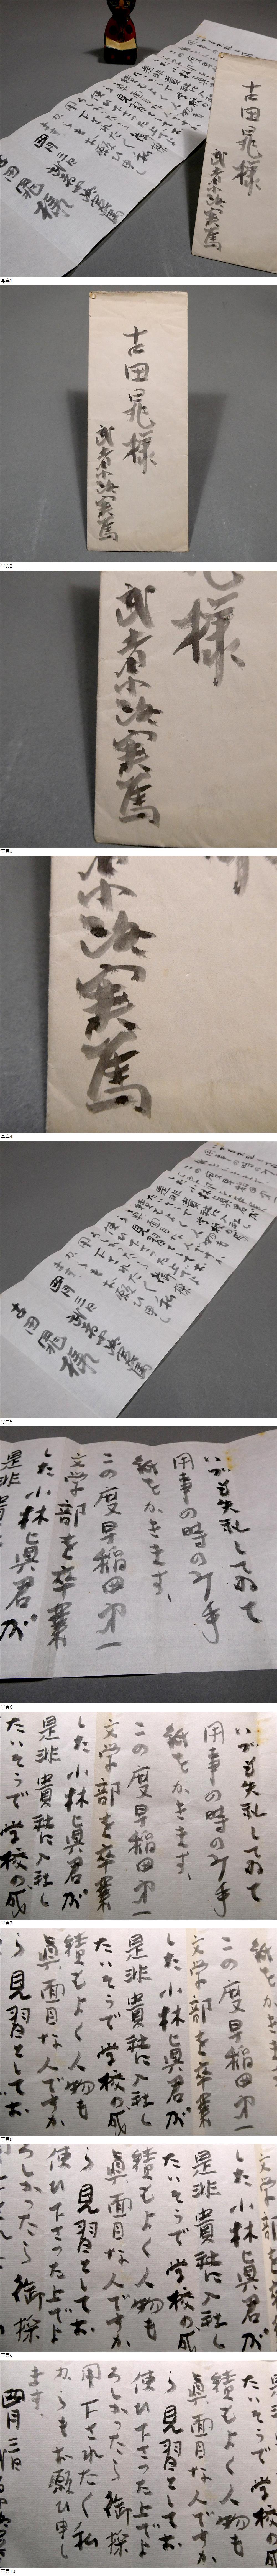 古田晁様
武者小路実篤
写真1
古田晁様
武者小路実篤
写真2
様
武者小路実篤
写真3
小路実篤
写真4
四月三日
武者小路実篤
古田晁様
写真5
いつも失礼してゐて
用事の時のみ手
紙をかきます、
この度早稲田第一
文学部を卒業
した小林眞君が
写真6
いつも失礼してゐて
用事の時のみ手
紙をかきます、
この度早稲田第一
文学部を卒業
した小林眞君が
是非貴社に入社し
たいそうで学校の成
写真7
紙をかき
この度早稲田第一
文学部を卒業
した小林眞君が
是非貴社に入社し
たいそうで学校の成
績もよく人物も
眞面目な人ですか
ら見習としてお
写真8
文学部を卒業
した小林眞君が
是非貴社に入社し
たいそうで学校の成
績もよく人物も
眞面目な人ですか
ら見習としてお
使ひ下さつた上でよ
ろしかつたら御採
写真9
たいそうで学校の成
績もよく人物も
眞面目な人ですか
ら見習としてお
使ひ下さつた上でよ
ろしかつたら御採
用下されたく私
からもお願ひ申し
ます、
四月三日
写真10